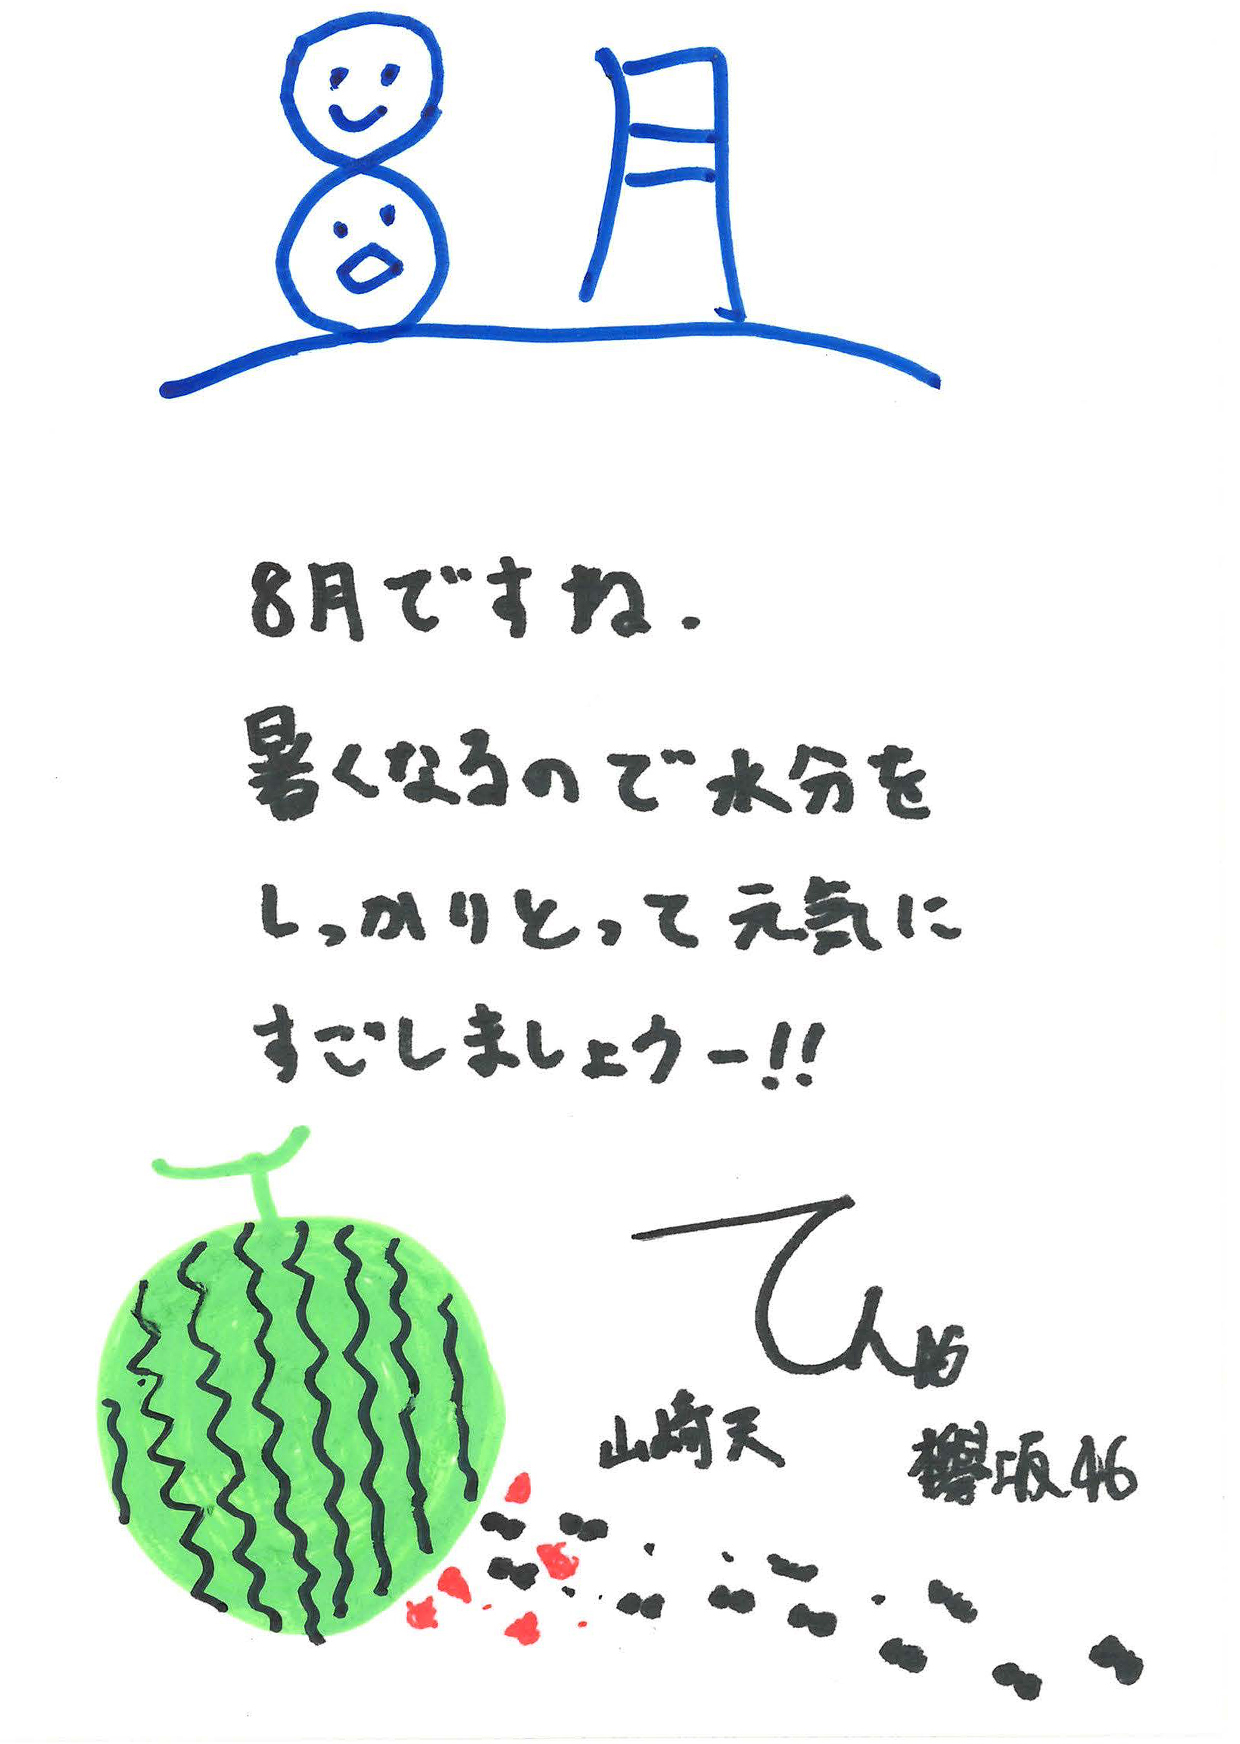 8月
8月ですね.
暑くなるので水分を
しっかりとって元気に
すごしましょうー!!
てん
山﨑天 欅坂46